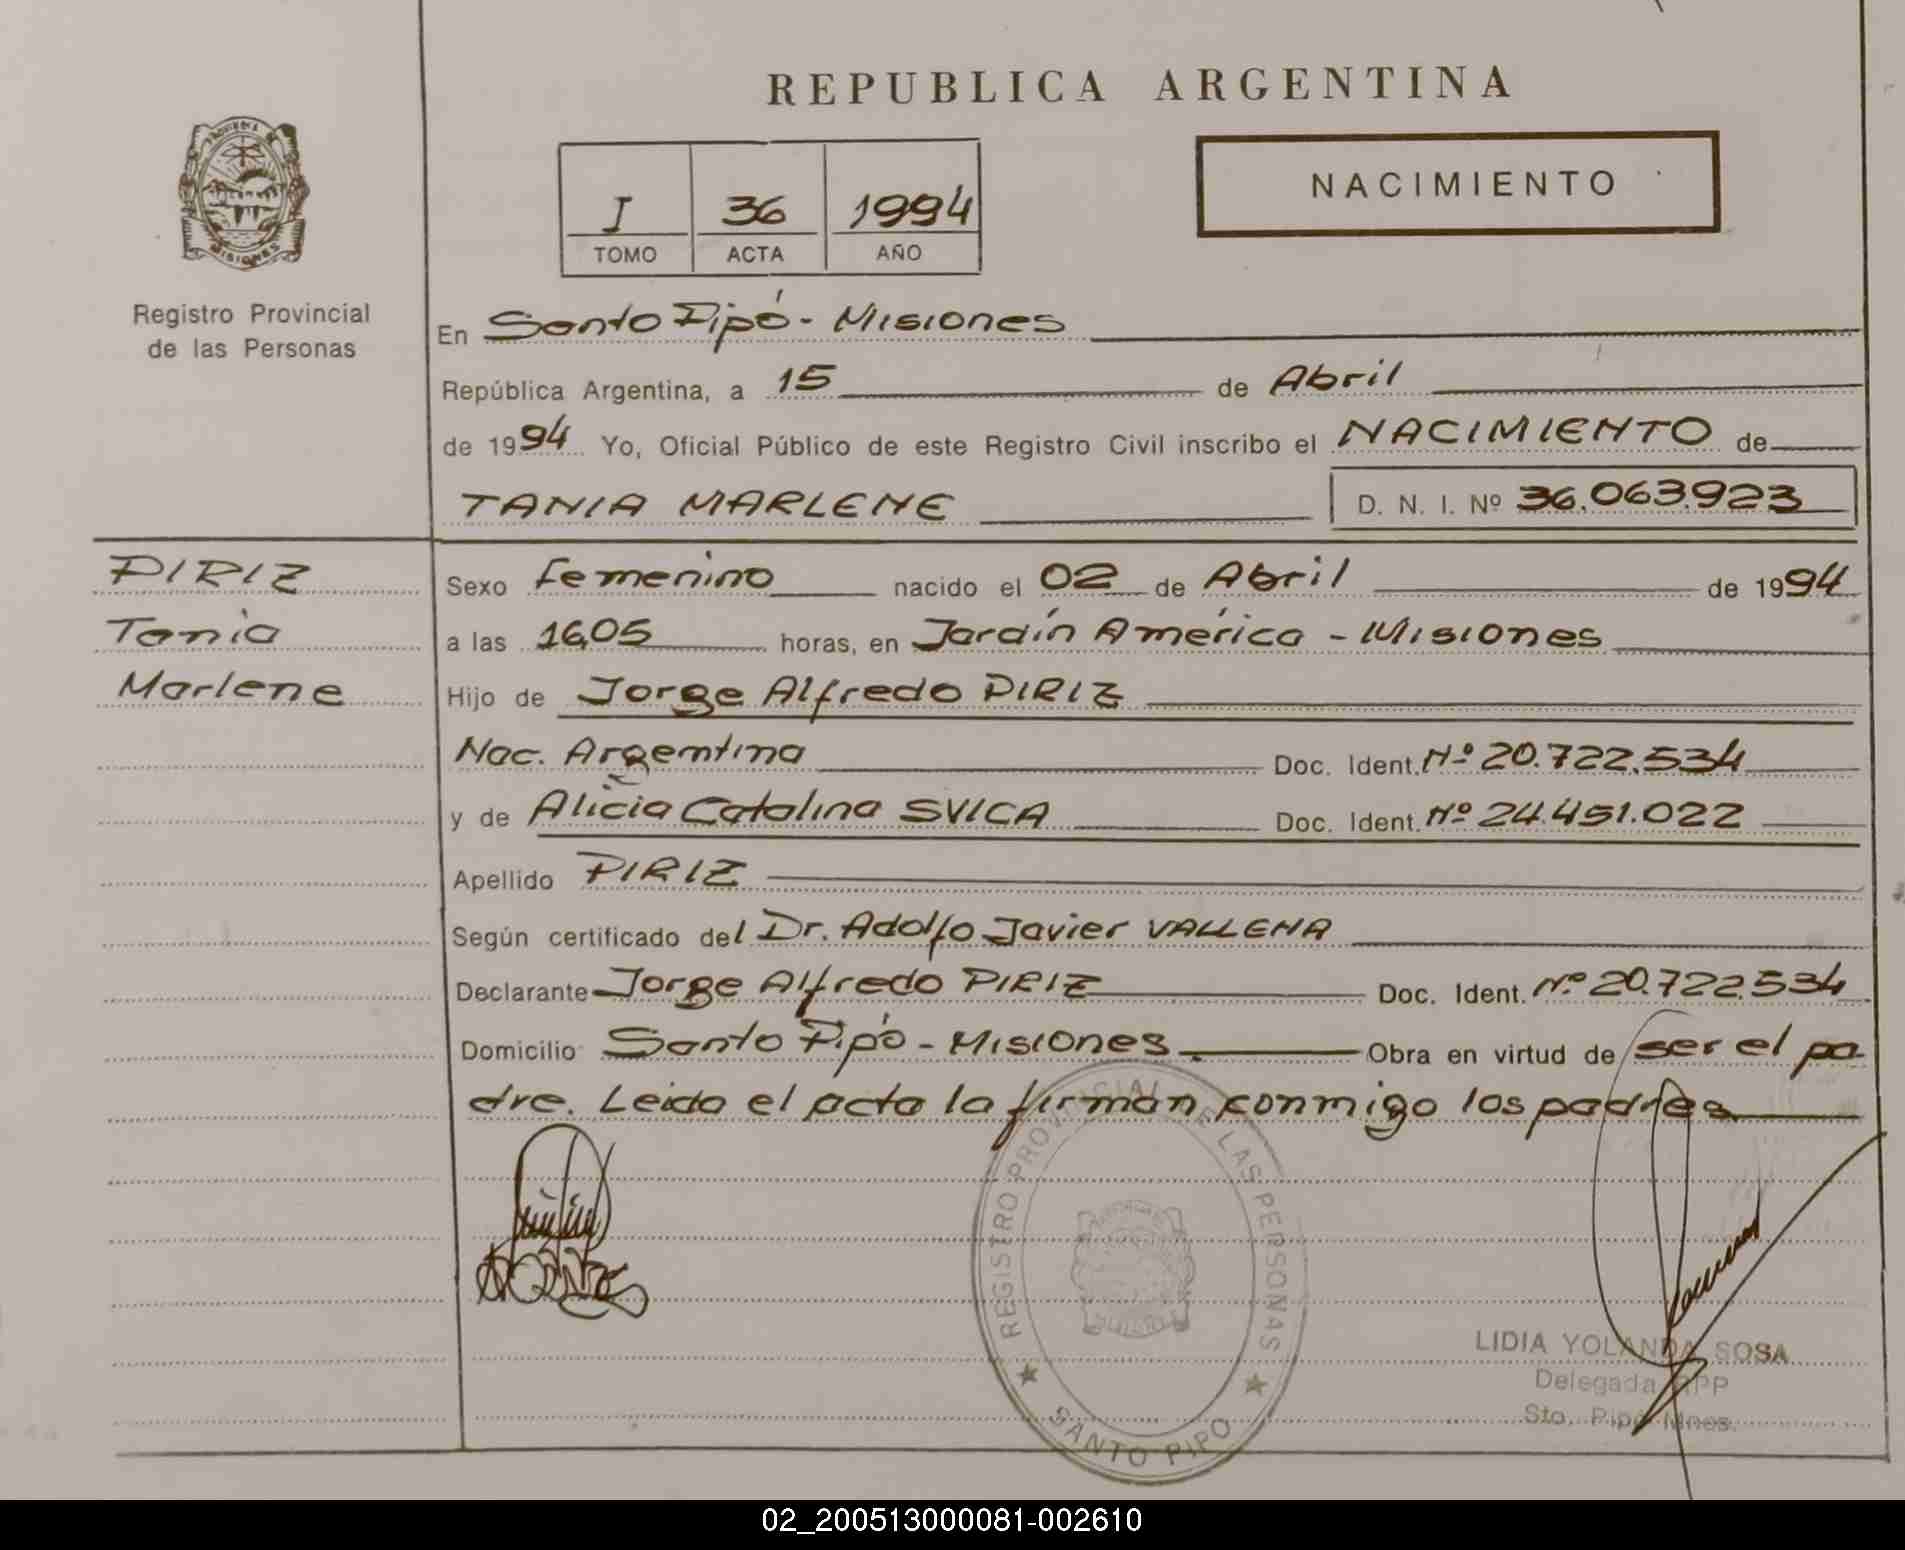 REPUBLICA ARGENTINA
PROVINCIA DE
MISIONES
Registro Provincial
de las Personas
I 36 1994
TOMO ACTA AÑO
NACIMIENTO
En Santo Pipó - Misiones
República Argentina, a 15 de Abril
de 1994 Yo, Oficial Público de este Registro Civil inscribo el NACIMIENTO de
TANIA MARLENE D. N. I. Nº 36.063.923
PIRIZ
Tania
Marlene
Sexo femenino nacido el 02 de Abril de 1994
a las 16,05 horas, en Jardín América - Misiones
Hijo de Jorge Alfredo PIRIZ
Nac. Argentina Doc. Ident. Nº 20.722.534
y de Alicia Catalina SVICA Doc. Ident. Nº 24.451.022
Apellido PIRIZ
Según certificado del Dr. Adolfo Javier VALLENA
Declarante Jorge Alfredo PIRIZ Doc. Ident. Nº 20.722.534
Domicilio Santo Pipó - Misiones Obra en virtud de ser el pa-
dre. Leida el acta la firman conmigo los padres
REGISTRO PROVINCIAL DE LAS PERSONAS
SANTO PIPO
LIDIA YOLANDA SOSA
Delegada RPP
Sto. Pipó Mnes.
02_200513000081-002610